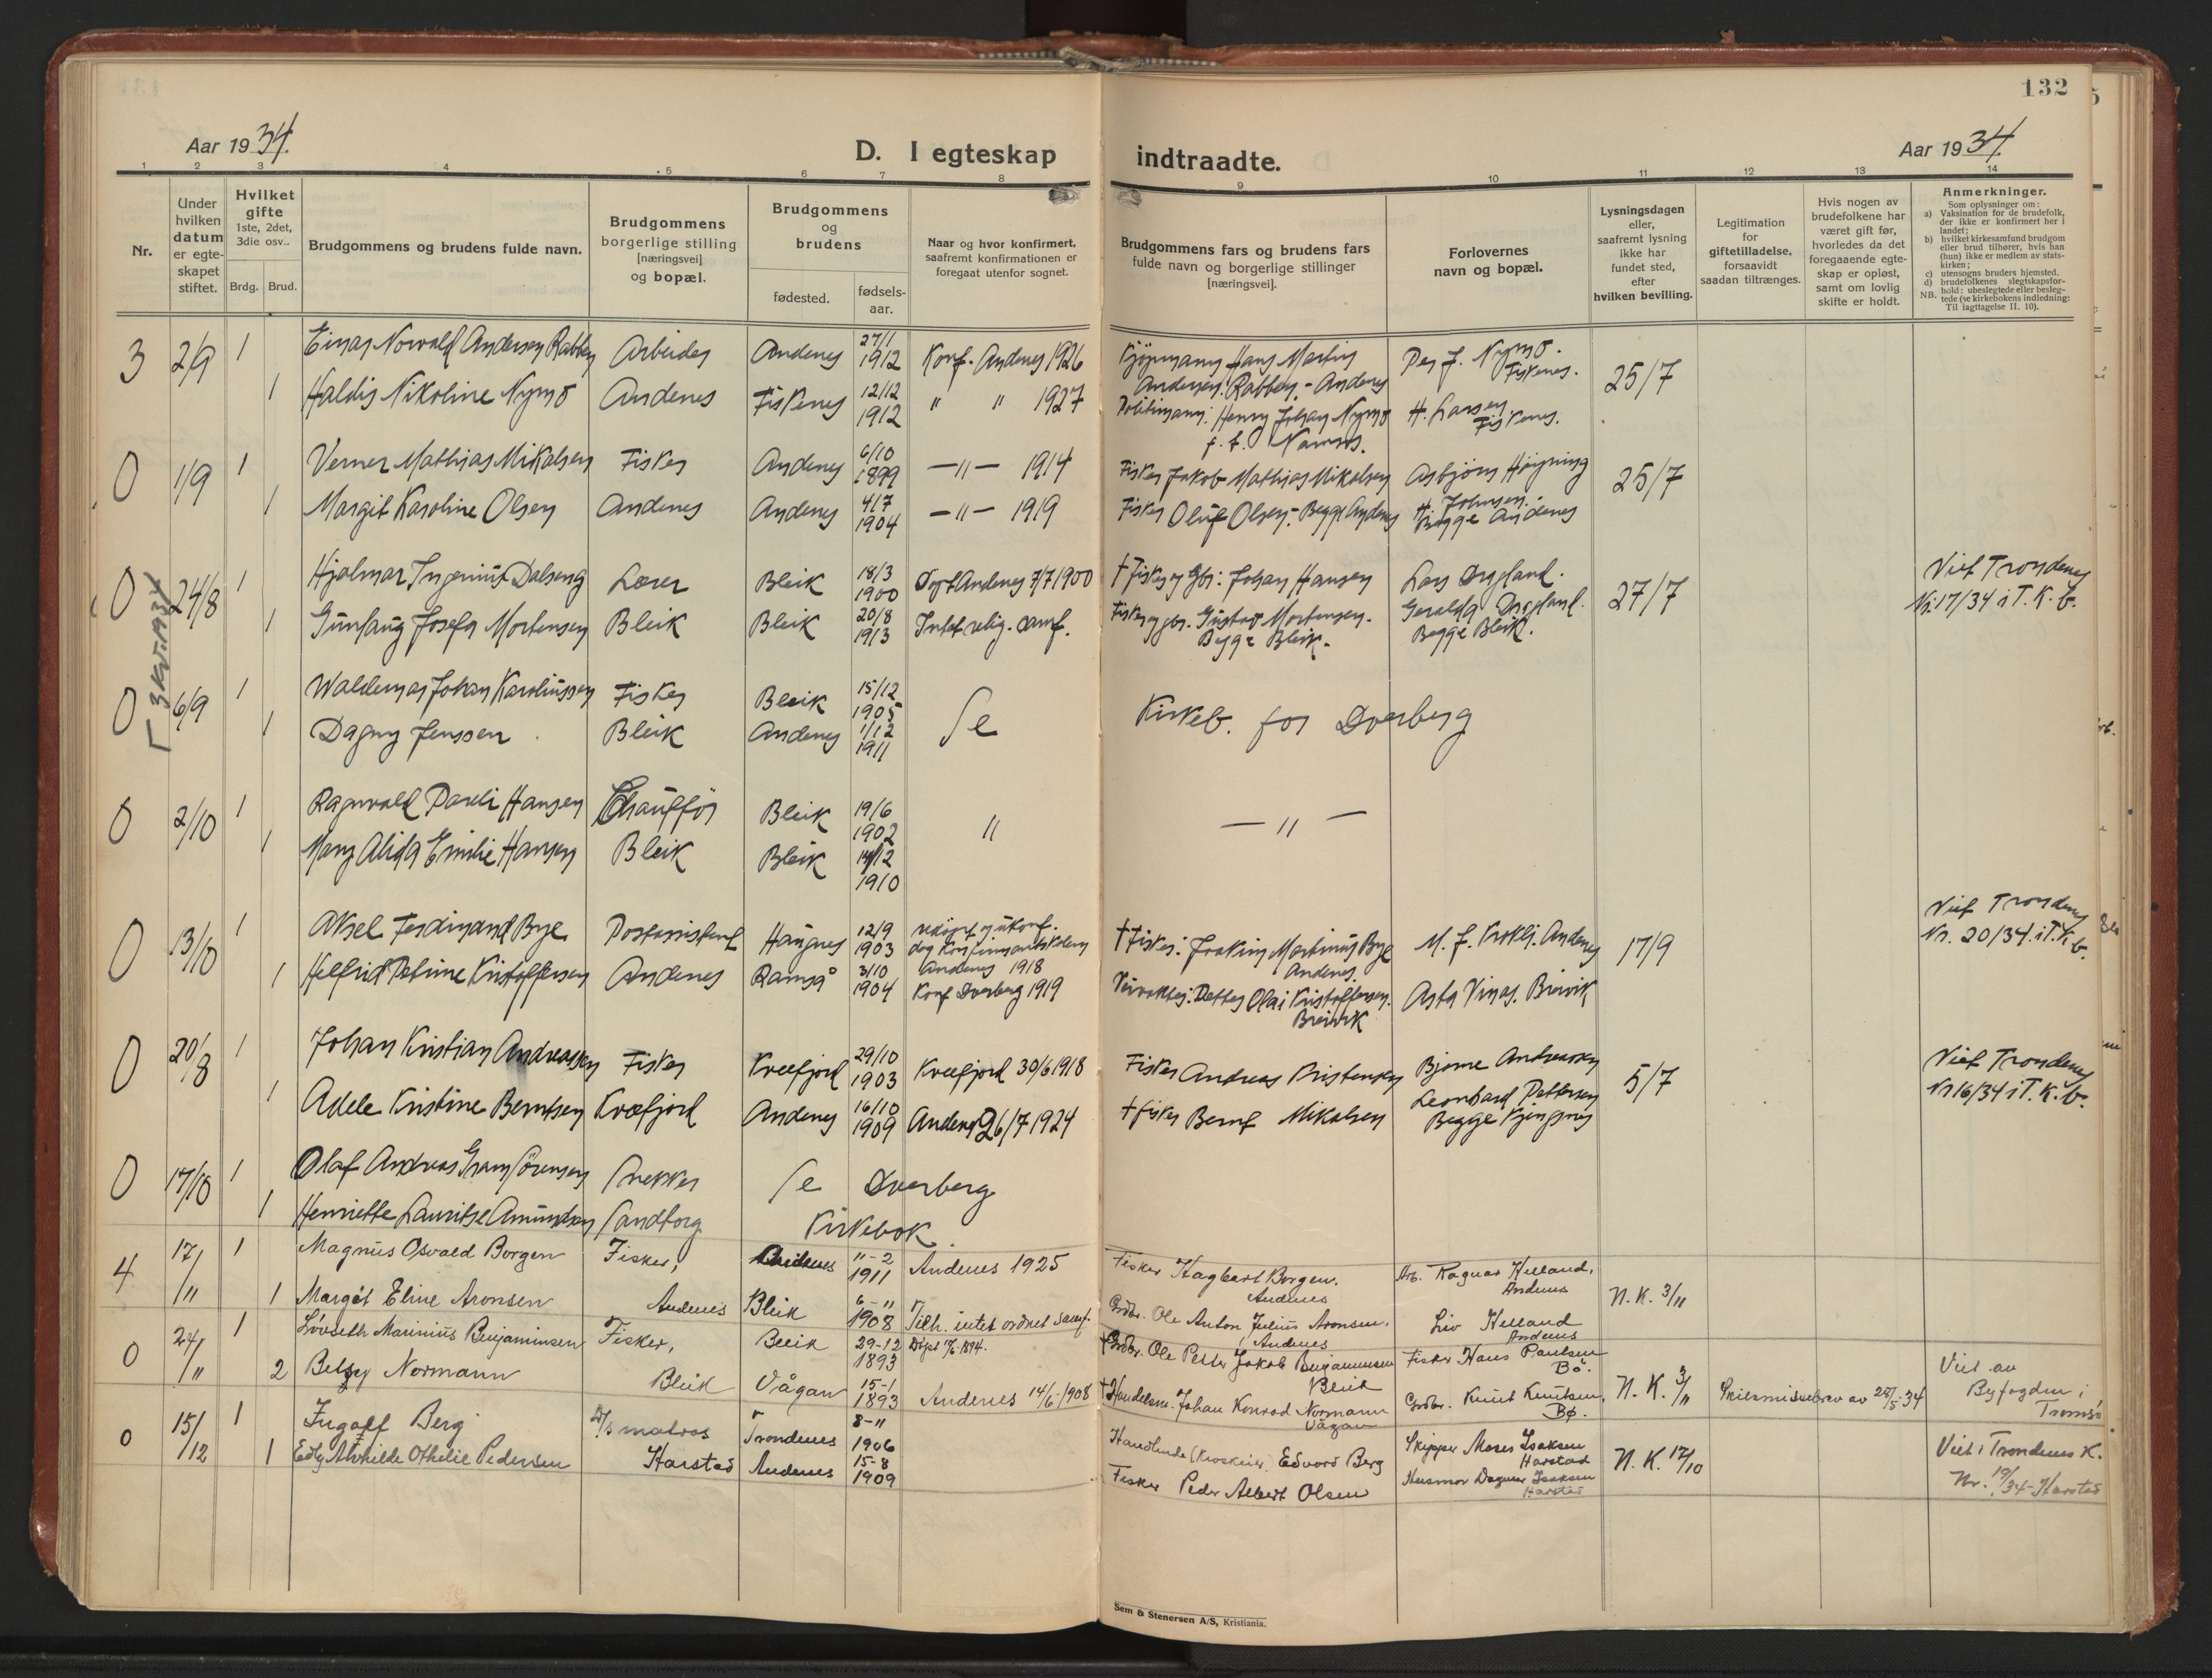 132
Aar 1934.
D. I egteskap indtraadte.
Aar 1934.
1 2 3 4 5 6 7 8 9 10 11 12 13 14
Nr.
Under hvilken datum er egteskapet stiftet.
Hvilket gifte 1ste, 2det, 3die osv..
Brdg. Brud.
Brudgommens og brudens fulde navn.
Brudgommens borgerlige stilling [næringsvei] og bopæl.
Brudgommens og brudens
fødested. fødsels-aar.
Naar og hvor konfirmert, saafremt konfirmationen er foregaat utenfor sognet.
Brudgommens fars og brudens fars fulde navn og borgerlige stillinger [næringsvei].
Forlovernes navn og bopæl.
Lysningsdagen eller, saafremt lysning ikke har fundet sted, efter hvilken bevilling.
Legitimation for giftetilladelse, forsaavidt saadan tiltrænges.
Hvis nogen av brudefolkene har været gift før, hvorledes da det foregaaende egteskap er opløst, samt om lovlig skifte er holdt.
Anmerkninger.
Som oplysninger om:
a) Vaksination for de brudefolk, der ikke er konfirmert her i landet;
b) hvilket kirkesamfund brudgom eller brud tilhører, hvis han (hun) ikke er medlem av statskirken;
c) utensogns bruders hjemsted.
d) brudefolkenes slegtskapsforhold: ubeslegtede eller beslegtede (se kirkebokens indledning: Til iagttagelse II. 10).
NB.
3 2/9 1 Einar Norvald Andersen Rabben Arbeider Andenes 27/1 1912 Konf. Andenes 1926 Kjøpmann Hans Martin Andersen Rabben - Andenes Per J. Nymo. Fiskenes. 25/7
1 Haldis Nikoline Nymo Andenes Fiskenes 12/12 1912 " " 1927 Politimann: Henry Johan Nymo f. t. Namsos. H. Larsen, Fiskenes.
0 1/9 1 Verner Mathias Mikalsen Fisker Andenes 6/10 1899 —"— 1914 Fisker Jakob Mathias Mikalsen Asbjørn Høyning 25/7
1 Margit Karoline Olsen Andenes Andenes 4/7 1904 —"— 1919 Fisker Oluf Olsen - Begge Andenes H. Johnsen. Begge Andenes
3 Kv. 1934
0 24/8 1 Hjalmar Ingenius Dalseng Lærer Bleik 18/3 1900 Døpt Andenes 7/7 1900 † Fisker og Gbr: Johan Hansen Lars Drygland. 27/7 Viet Trondenes
1 Gunlaug Josefa Mortensen Bleik Bleik 20/8 1913 Intet relig. samf. Fisker og gbr. Gustav Mortensen. Begge Bleik. Geralda Drygland. Begge Bleik. Nr. 17/34 i T. K. b.
0 6/9 1 Waldemar Johan Karoliussen Fisker Bleik 15/12 1905 Se Kirkeb. for Dverberg
1 Dagny Jenssen Bleik Andenes 1/12 1911
0 2/10 1 Ragnvald Pareli Hansen Chauffør Bleik 19/6 1902 " — " —
1 Mary Alida Emilie Hansen Bleik Bleik 14/12 1910
0 13/10 1 Aksel Ferdinand Bye Postassistent Haugnes 12/9 1903 udøpt og ukonf. dog Konfirmantskolen Andenes 1918 † Fisker: Joakim Martinus Bye Andenes. M. J. Krokli. Andenes 17/9 Viet Trondenes
1 Helfrid Petrine Kristoffersen Andenes Ramså 3/10 1904 Konf Dverberg 1919 Detter Olai Kristoffersen. Breivik Asta Vinas. Breivik Nr. 20/34 i T. K. b.
0 20/8 1 Johan Kristian Andreassen Fisker Kvæfjord 29/10 1903 Kvæfjord 30/6 1918 Fisker Andreas Kristensen Bjarne Andreassen 5/7 Viet Trondenes
1 Adele Kristine Berntsen Kvæfjord Andenes 16/10 1909 Andenes 26/7 1924 † fisker Bernt Mikalsen Leonhard Pettersen Begge Kjengsnes Nr 16/34 i T. K. b.
0 17/10 1 Olaf Andreas Gram Sørensen Snekker Se Dverberg
1 Henriette Lauritse Amundsen Sandtorg Kirkebok
4 17/11 1 Magnus Osvald Borgen Fisker, Andenes 11-2 1911 Andenes 1925 Fisker Hagbart Borgen. Andenes Arb. Ragnar Helland, Andenes N. K. 3/11
1 Margit Eline Aronsen Andenes Bleik 6-11 1908 Tilh. intet ordnet samf. Grdbr. Ole Anton Julius Aronsen, Andenes Liv Helland Andenes
0 24/11 1 Lövseth Marinius Benjaminsen Fisker, Bleik 29-12 1893 Døpt 17/6-1894. † Grdbr. Ole Peter Jakob Benjaminsen Bleik Fisker Hans Paulsen Bö. N. K. 3/11 Skilsmissebrev av 28/5-34 Viet av
2 Betzy Normann Bleik Vågan 15-1 1893 Andenes 14/6-1908 † Handelsm. Johan Konrad Normann Vågan Grdbr. Knut Knutsen, Bø. Byfogden i Tromsö
0 15/12 1 Ingolf Berg D/s matros Trondenes 8-11 1906 Handlende (Kioskeier) Edvard Berg Skipper Moses Isaksen Harstad N. K. 17/10 Viet i Trondenes K.
1 Edly Alvhilde Othelie Pedersen Harstad Andenes 15-8 1909 Fisker Peder Albert Olsen Husmor Dagmar Isaksen Harstad Nr. 19/34 - Harstad
Sem & Stenersen A/S, Kristiania.